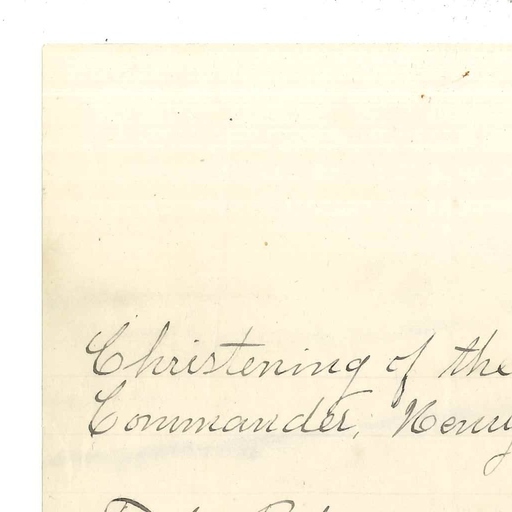 Christening of the
Commander, Henry